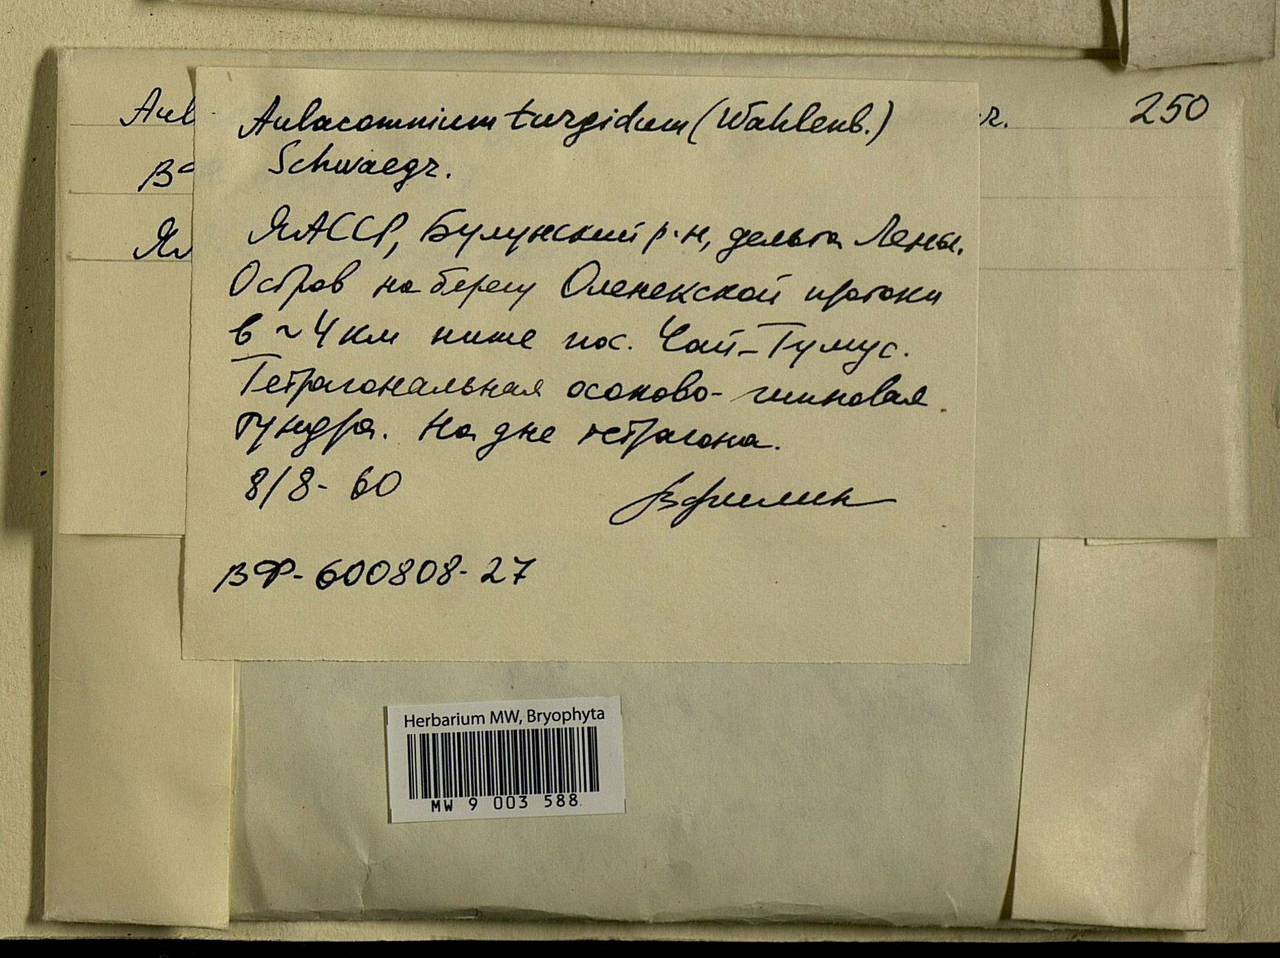 Aul
250
г.
ВФ
Як
Aulacomnium turgidum (Wahlenb.)
Schwaegr.
ЯАССР, Булунский р-н, дельта Лены.
Остров на берегу Оленекской протоки
в ~ 4 км ниже пос. Чай-Тумус.
Тетрагональная осоково-гипновая
тундра. На дне тетрагона.
8/8- 60 ВФилин
ВФ-600808-27
Herbarium MW, Bryophyta
MW 9 003 588